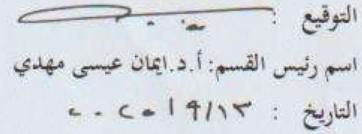 التوقيع :
اسم رئيس القسم: أ.د.ايمان عيسى مهدي
التاريخ : ١٣/٩/٢٠٢٠